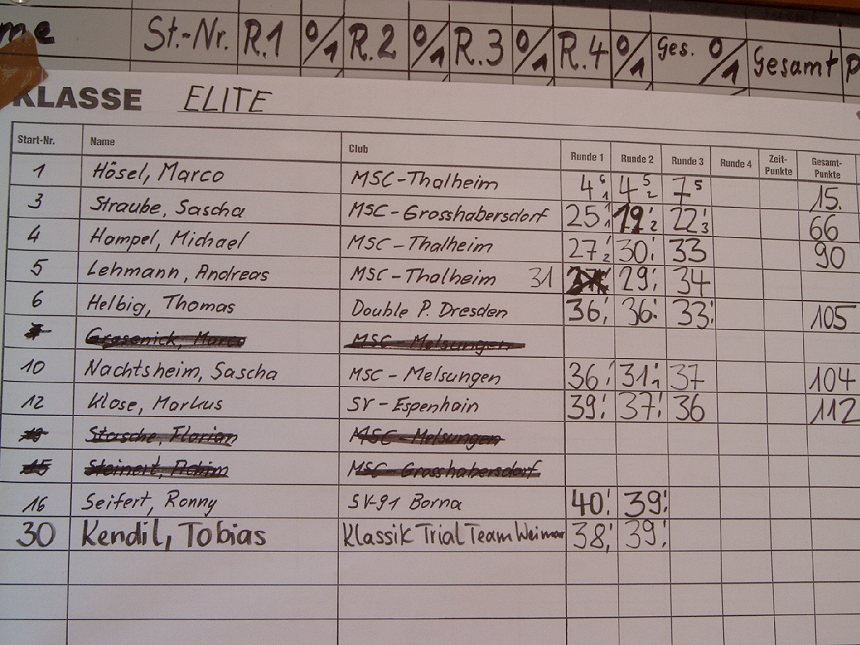 me St.-Nr. R.1 0/1 R.2 0/1 R.3 0/1 R.4 0/1 Ges. 0/1 Gesamt P
KLASSE ELITE
Start-Nr. Name Club Runde 1 Runde 2 Runde 3 Runde 4 Zeit-Punkte Gesamt-Punkte
1 Hösel, Marco MSC-Thalheim 4 6 1 4 5 2 7 5 15.
3 Straube, Sascha MSC-Grosshabersdorf 25 1 1 19 1 2 22 1 3 66
4 Hampel, Michael MSC-Thalheim 27 1 2 30 1 33 90
5 Lehmann, Andreas MSC-Thalheim 31 29 1 34
6 Helbig, Thomas Double P. Dresden 36 1 36 33 105
Grosenick, Marco MSC-Melsungen
10 Nachtsheim, Sascha MSC-Melsungen 36 31 37 104
12 Klose, Markus SV-Espenhain 39 37 36 112
13 Stasche, Florian MSC-Melsungen
15 Steinert, Achim MSC-Grosshabersdorf
16 Seifert, Ronny SV-91 Borna 40 39
30 Kendil, Tobias Klassik Trial Team Weimar 38 39